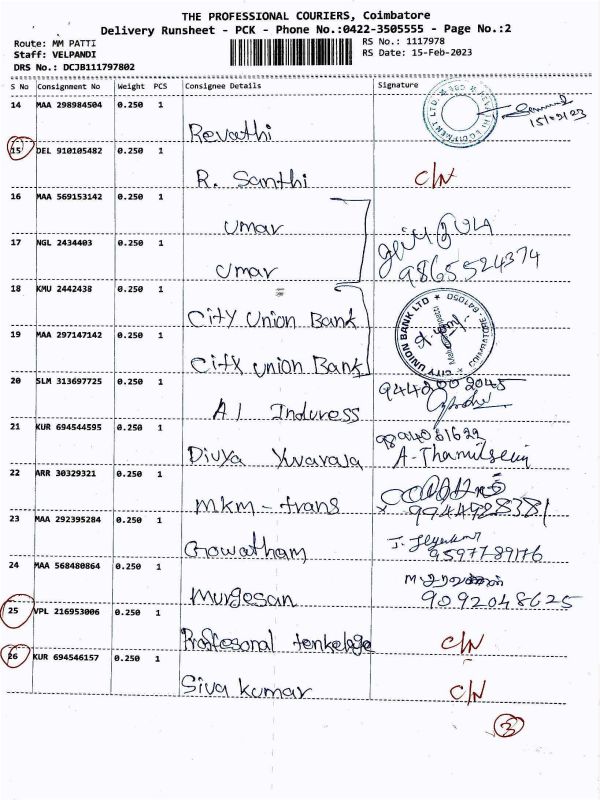 THE PROFESSIONAL COURIERS, Coimbatore
Delivery Runsheet - PCK - Phone No.:0422-3505555 - Page No.:2
Route: MM PATTI
RS No.: 1117978
Staff: VELPANDI
RS Date: 15-Feb-2023
DRS No.: DCJB111797802
S No Consignment No Weight PCS Consignee Details Signature
14 MAA 298984504 0.250 1
Revathi
15/02/23
15 DEL 910105482 0.250 1
R. Santhi C/N
16 MAA 569153142 0.250 1
umar
17 NGL 2434403 0.250 1
umar 9865524374
18 KMU 2442438 0.250 1
City Union Bank
CITY UNION BANK LTD
COIMBATORE-641050
19 MAA 297147142 0.250 1
City union Bank
20 SLM 313697725 0.250 1
A1 Induress
21 KUR 694544595 0.250 1
Divya Yuvaraja
A-Thamilselvi
22 ARR 30329321 0.250 1
mkm-trans 9944928381
23 MAA 292395284 0.250 1
Gowatham 9597789176
24 MAA 568480864 0.250 1
Murgesan 9092048625
25 VPL 216953006 0.250 1
Proffesoral tenkeloge C/N
26 KUR 694546157 0.250 1
Siva kumar C/N
3